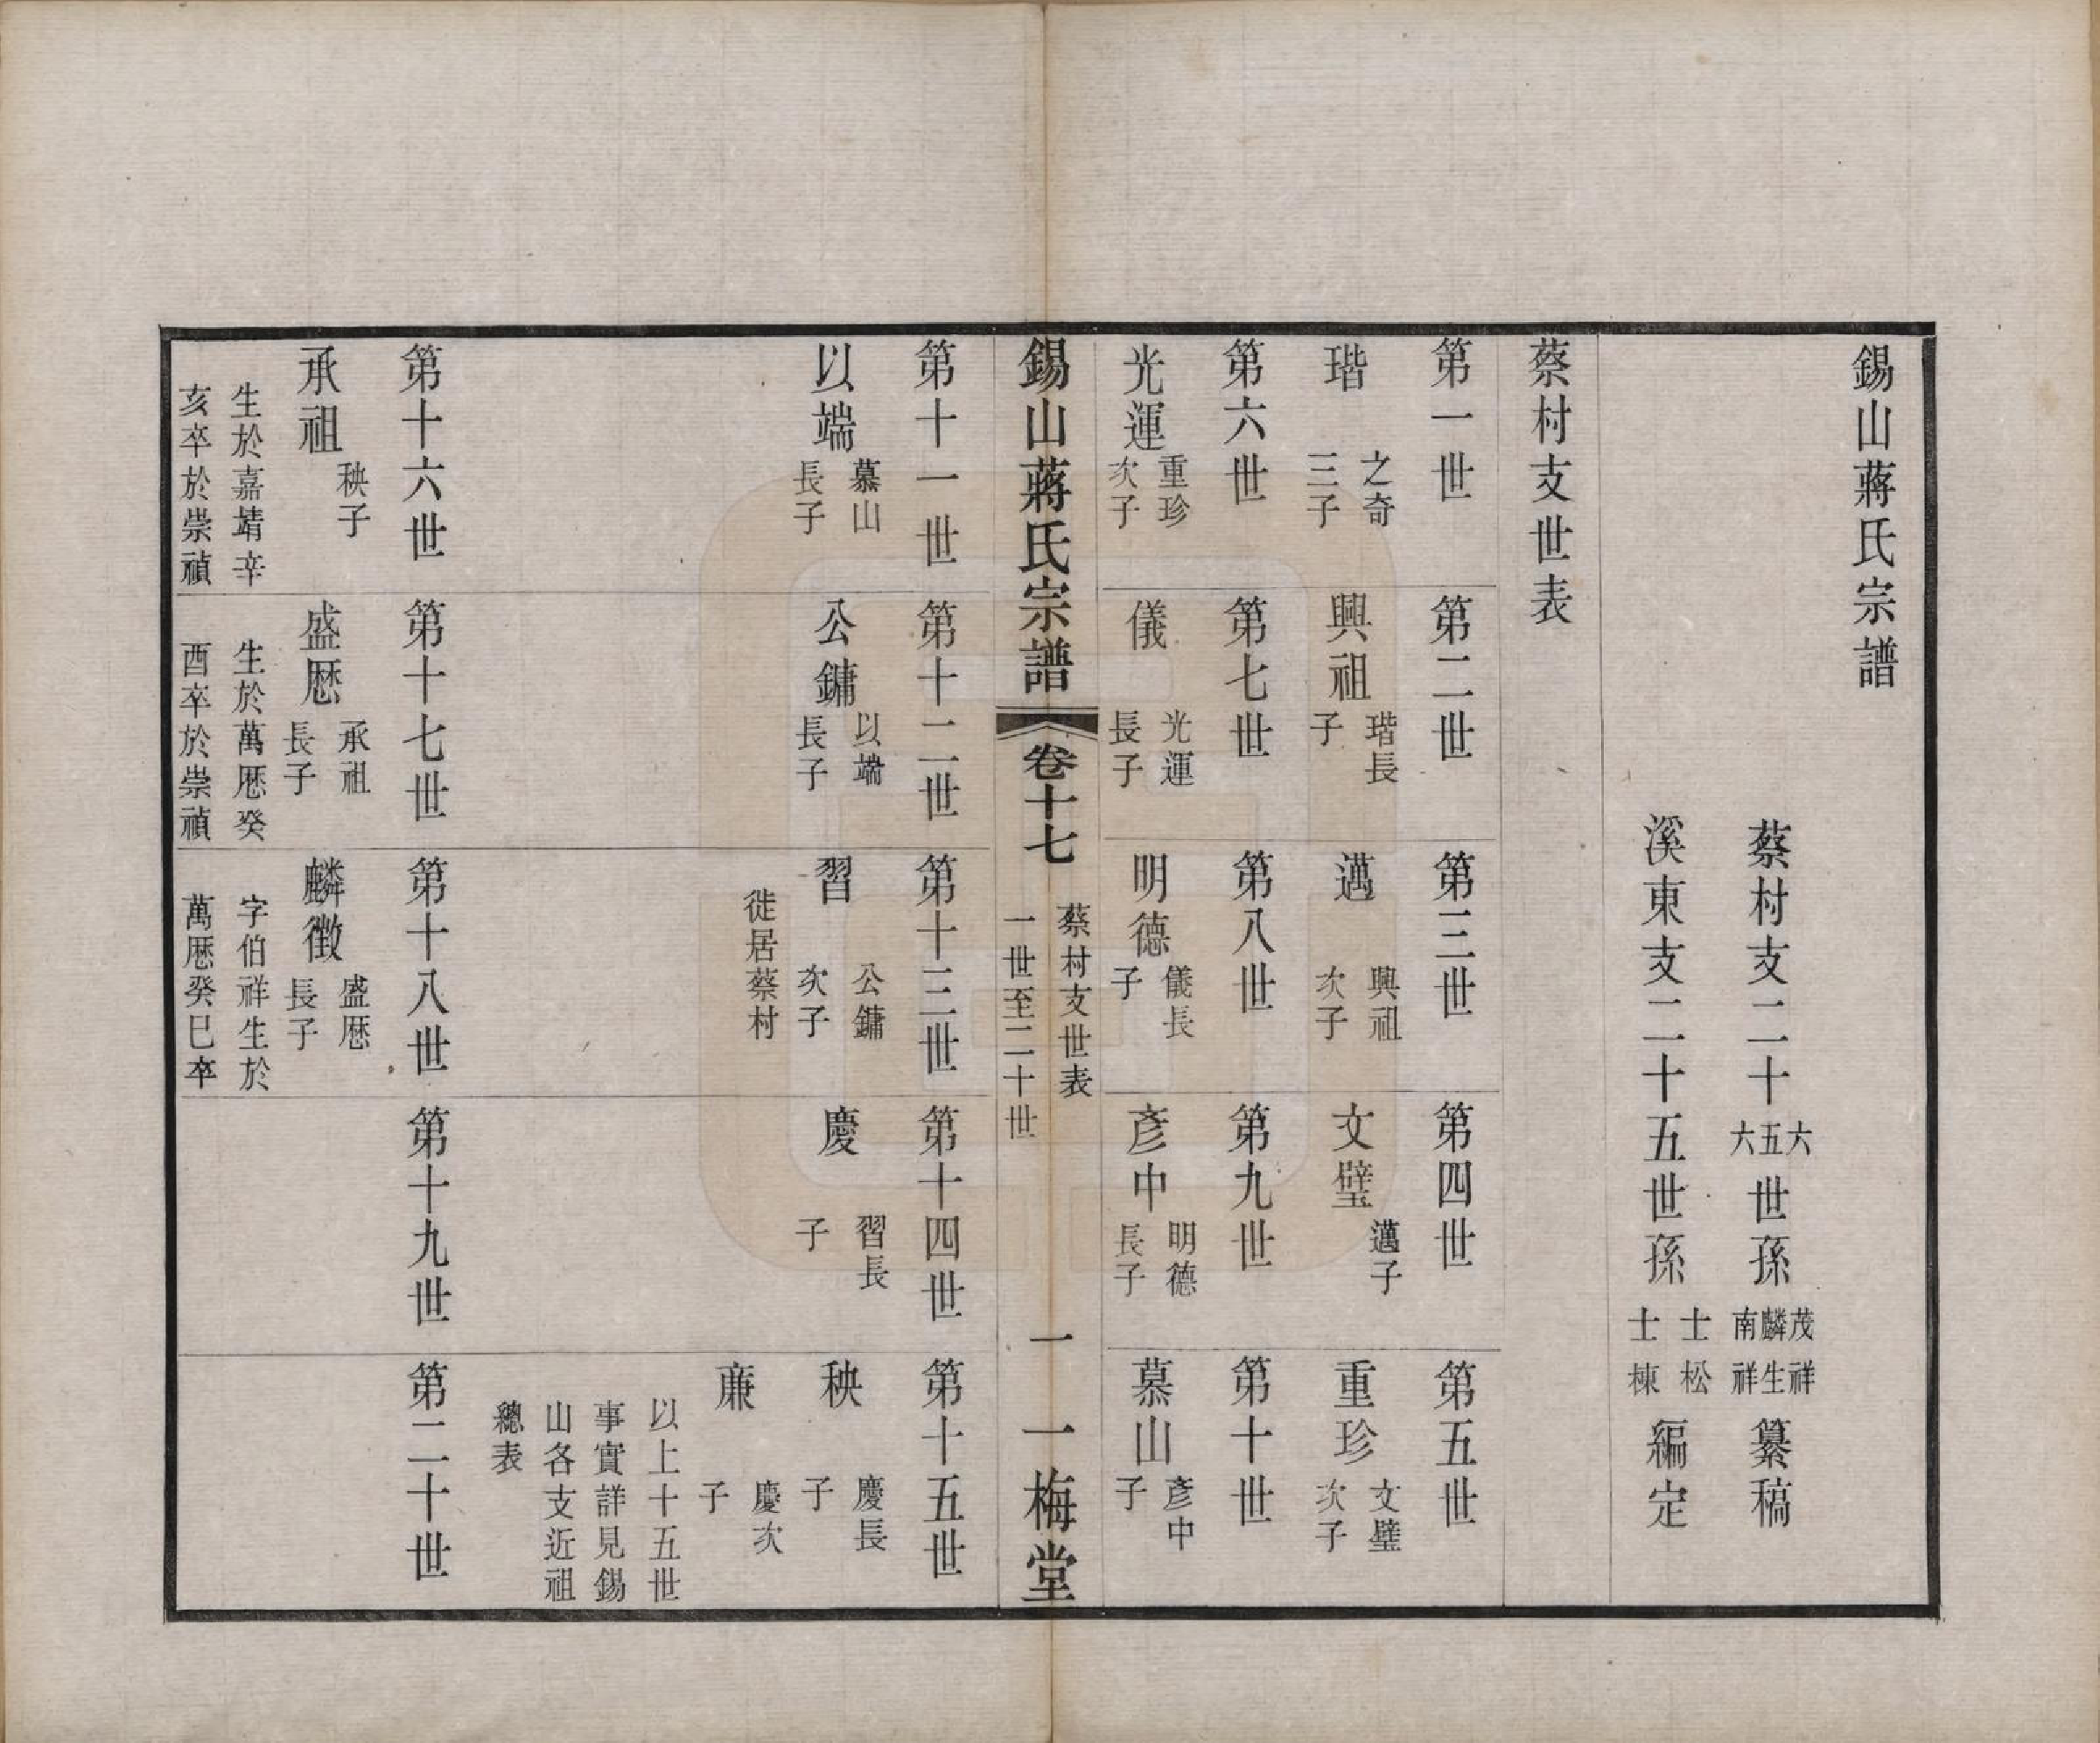 錫山蔣氏宗譜
蔡村支二十六五六世孫茂祥麟生南祥纂稿
溪東支二十五世孫士松士棟編定
蔡村支世表
第一世
第二世
第三世
第四世
第五世
瑎 之奇三子
興祖 瑎長子
邁 興祖次子
文璧 邁子
重珍 文璧次子
第六世
第七世
第八世
第九世
第十世
光運 重珍次子
儀 光運長子
明德 儀長子
彥中 明德長子
慕山 彥中子
錫山蔣氏宗譜 卷十七 蔡村支世表 一世至二十世 一 一梅堂
第十一世
第十二世
第十三世
第十四世
第十五世
以端 慕山長子
公鏞 以端長子
習 公鏞次子
徙居蔡村
慶 習長子
秧 慶長子
亷 慶次子
以上十五世
事實詳見錫
山各支近祖
總表
第十六世
第十七世
第十八世
第十九世
第二十世
承祖 秧子
生於嘉靖辛
亥卒於崇禎
盛厯 承祖長子
生於萬厯癸
酉卒於崇禎
麟徵 盛厯長子
字伯祥生於
萬厯癸巳卒